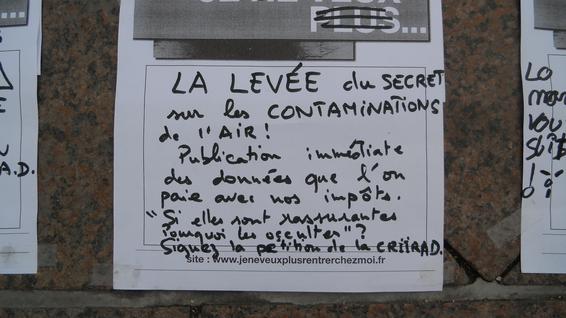 PLUS...
LA LEVÉE du SECRET
sur les CONTAMINATIONS
de l'AIR!
Publication immédiate
des données que l'on
paie avec nos impôts.
"Si elles sont rassurantes
Pourquoi les occulter"?
Signez la pétition de la CRIIRAD.
site : www.jeneveuxplusrentrerchezmoi.fr
A.D.
VOU